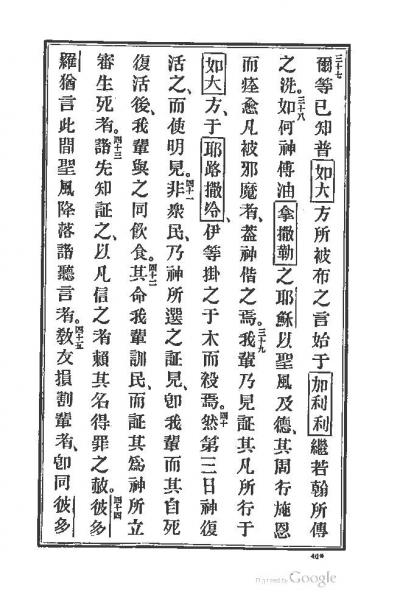 三十七 爾等已知普如大方所被布之言始于加利利繼若翰所傳
之洗。三十八 如何神傅油拿撒勒之耶穌以聖風及德、其周行施恩
而痊愈凡被邪魔者、蓋神偕之焉。三十九 我輩乃見証其凡所行于
如大方、于耶路撒冷、伊等掛之于木而殺焉。四十 然第三日神復
活之、而使明見。四十一 非衆民、乃神所選之証見、卽我輩而其自死
復活後、我輩與之同飲食。四十二 其命我輩訓民、而証其爲神所立
審生死者。四十三 諸先知証之、以凡信之者賴其名得罪之赦。四十四 彼多
羅猶言此間聖風降落諸聽言者。四十五 敎友損割輩者、卽同彼多
Digitized by Google